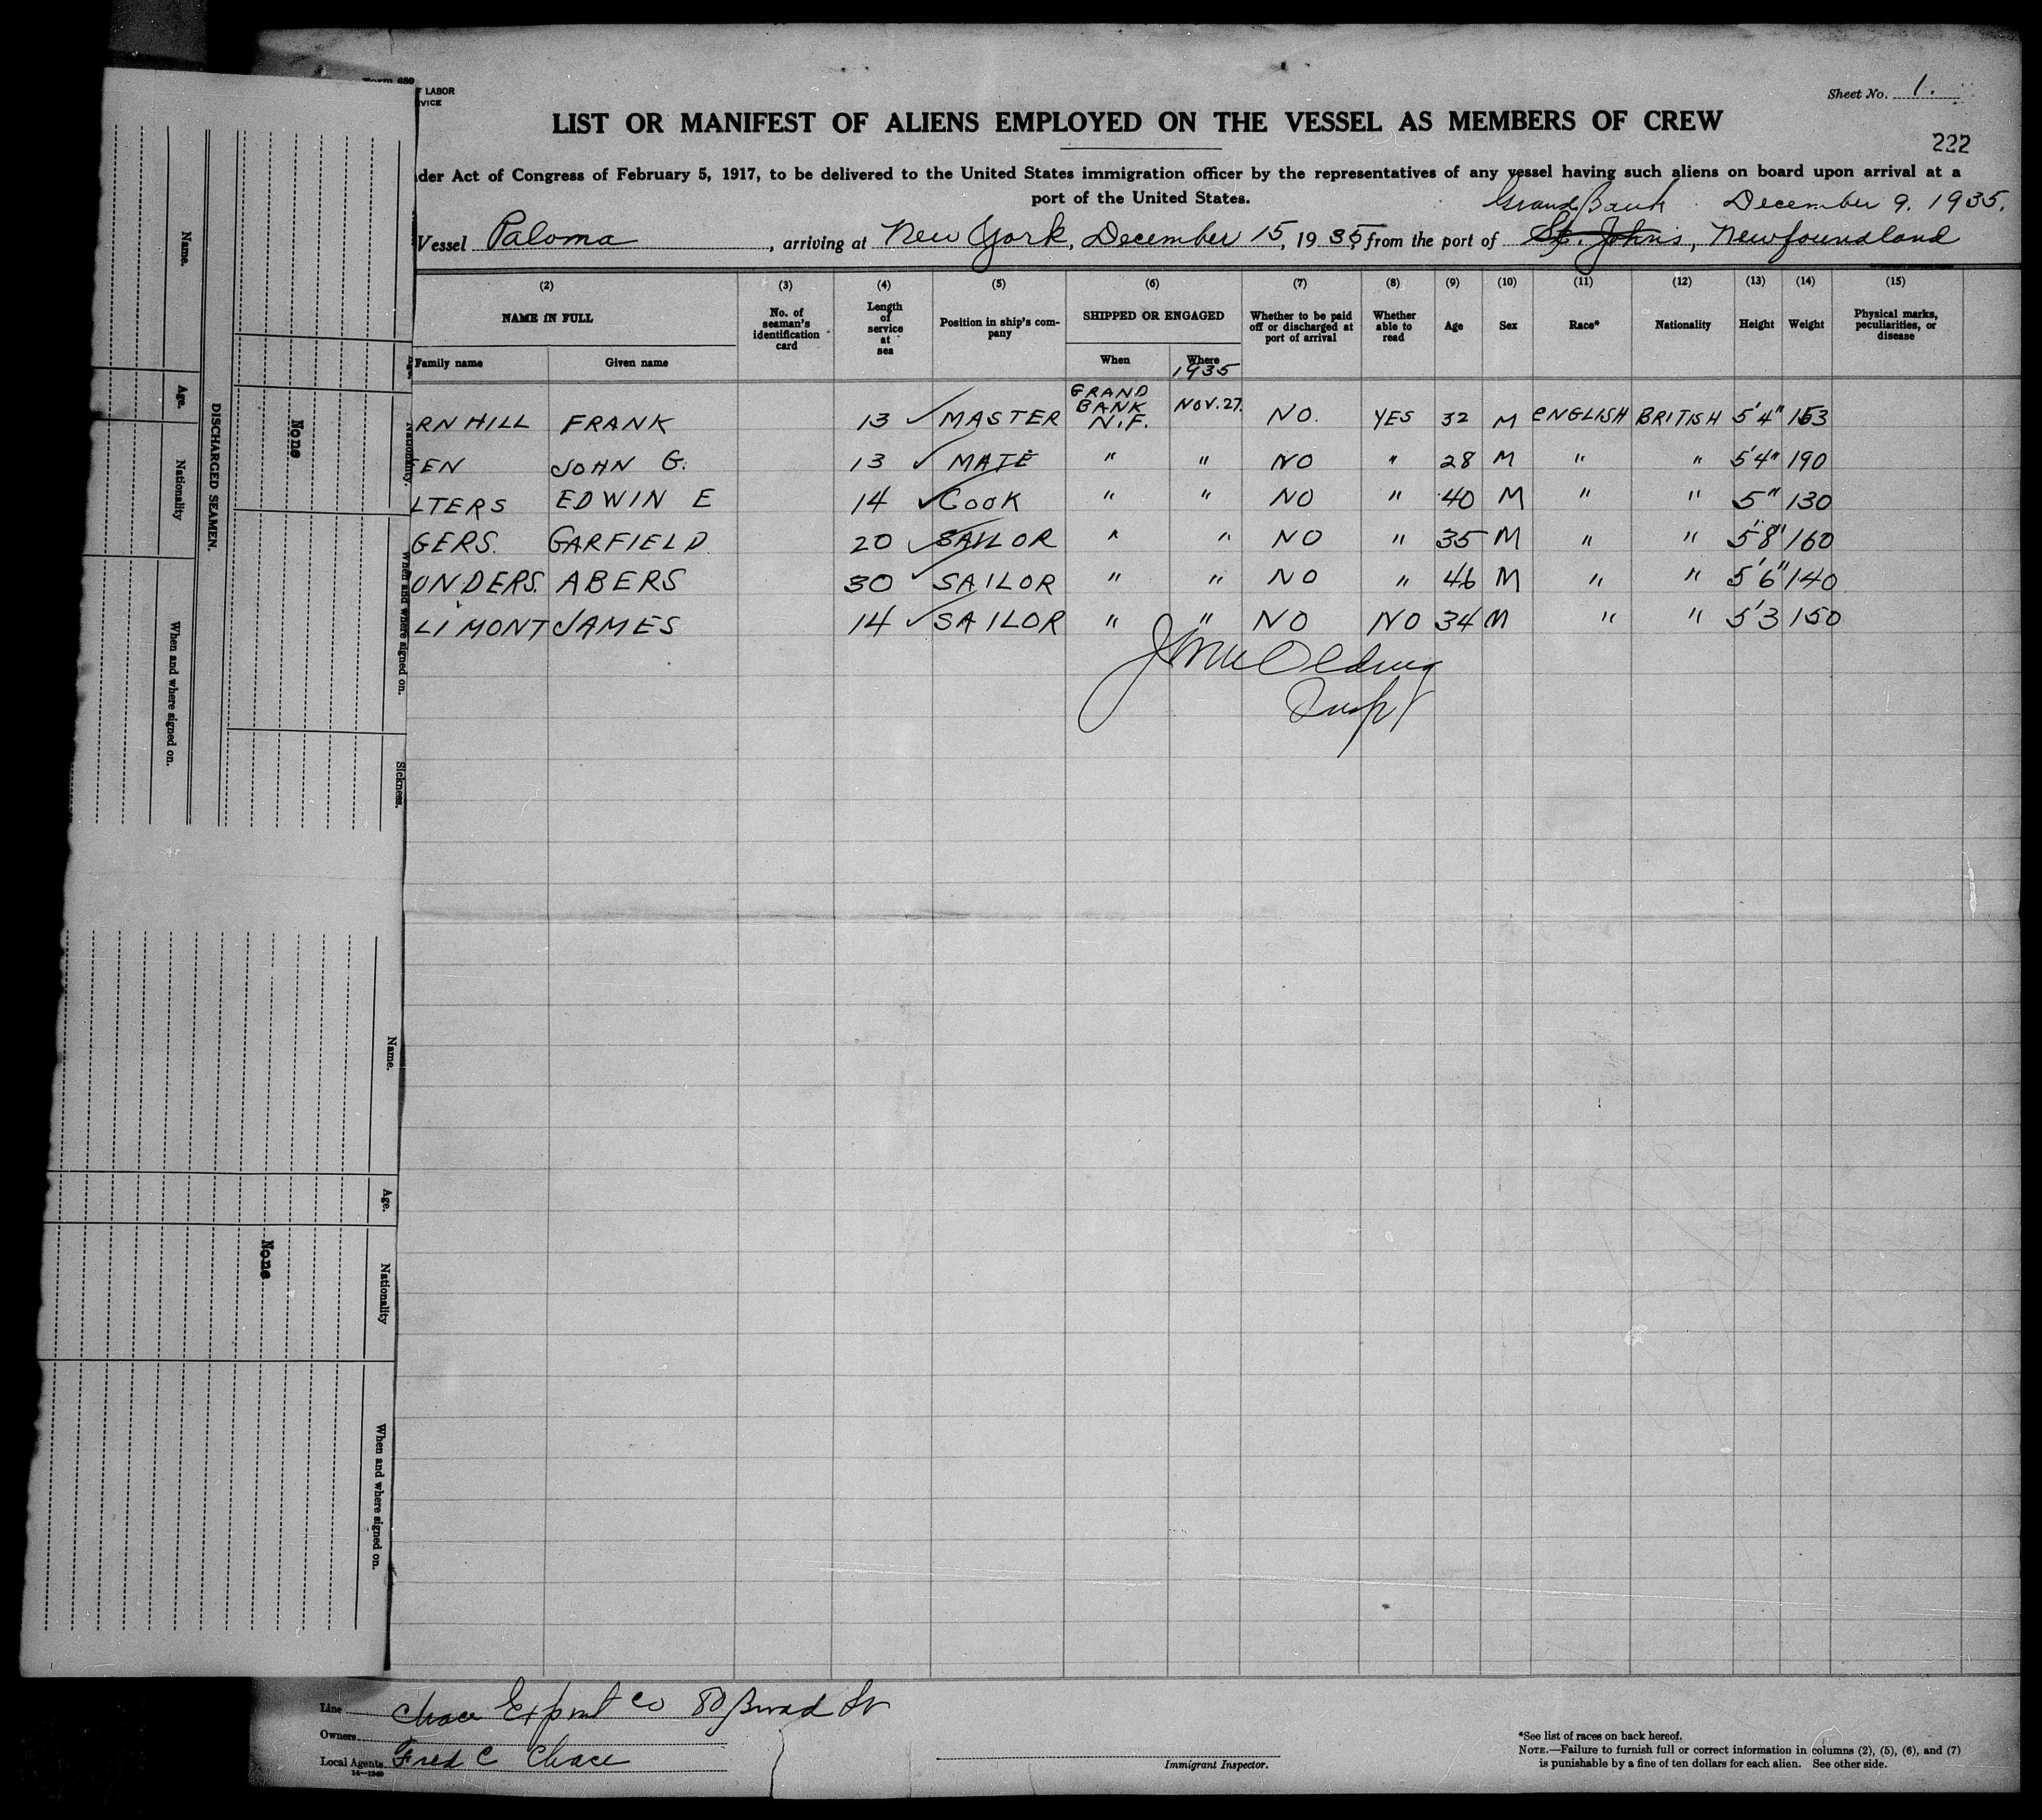 Form 680
F LABOR
RVICE
Sheet No. 1.
LIST OR MANIFEST OF ALIENS EMPLOYED ON THE VESSEL AS MEMBERS OF CREW
222
der Act of Congress of February 5, 1917, to be delivered to the United States immigration officer by the representatives of any vessel having such aliens on board upon arrival at a
port of the United States.
Grand Bank December 9. 1935.
Vessel Paloma, arriving at New York, December 15, 1935, from the port of St. Johns, Newfoundland
(2) (3) (4) (5) (6) (7) (8) (9) (10) (11) (12) (13) (14) (15)
NAME IN FULL
Family name Given name
No. of seaman's identification card
Length of service at sea
Position in ship's company
SHIPPED OR ENGAGED
When Where
1935
Whether to be paid off or discharged at port of arrival
Whether able to read
Age
Sex
Race*
Nationality
Height
Weight
Physical marks, peculiarities, or disease
RNHILL FRANK 13 ✓ MASTER GRAND BANK N.F. NOV.27. NO. YES 32 M ENGLISH BRITISH 5'4" 153
EN JOHN G. 13 ✓ MATE " " NO " 28 M " " 5'4" 190
LTERS EDWIN E 14 ✓ COOK " " NO " 40 M " " 5" 130
GERS. GARFIELD. 20 ✓ SAILOR " " NO " 35 M " " 5'8" 160
UNDERS. ABERS 30 ✓ SAILOR " " NO " 46 M " " 5'6" 140
LIMONT JAMES 14 ✓ SAILOR " " NO NO 34 M " " 5'3 150
Inspt
Name.
Age.
Nationality
When and where signed on.
DISCHARGED SEAMEN.
None
Nationality.
When and where signed on.
Sickness.
Name.
Age.
Nationality
When and where signed on.
None
Line Chace Export Co 80 Broad St
Owners
Local Agents Fred C Chace
14—1240
Immigrant Inspector.
*See list of races on back hereof.
NOTE.—Failure to furnish full or correct information in columns (2), (5), (6), and (7)
is punishable by a fine of ten dollars for each alien. See other side.